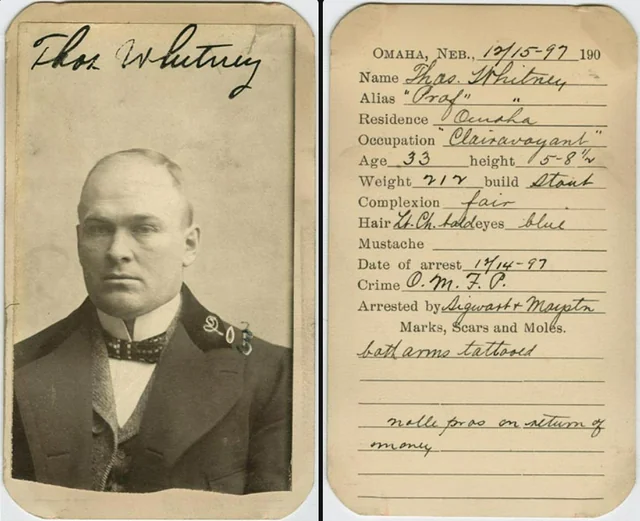 Thos Whitney
OMAHA, NEB., 12/15-97 190
Name Thos. Whitney
Alias "Prof" "
Residence Omaha
Occupation "Clairavoyant"
Age 33 height 5-8 1/2
Weight 212 build Stout
Complexion fair
Hair Lt. Ch. bald eyes blue
Mustache
Date of arrest 12/14-97
Crime O. M. F. P.
Arrested by Sigwart &
Marks, Scars and Moles.
both arms tattooed
nolle pros on return of
money